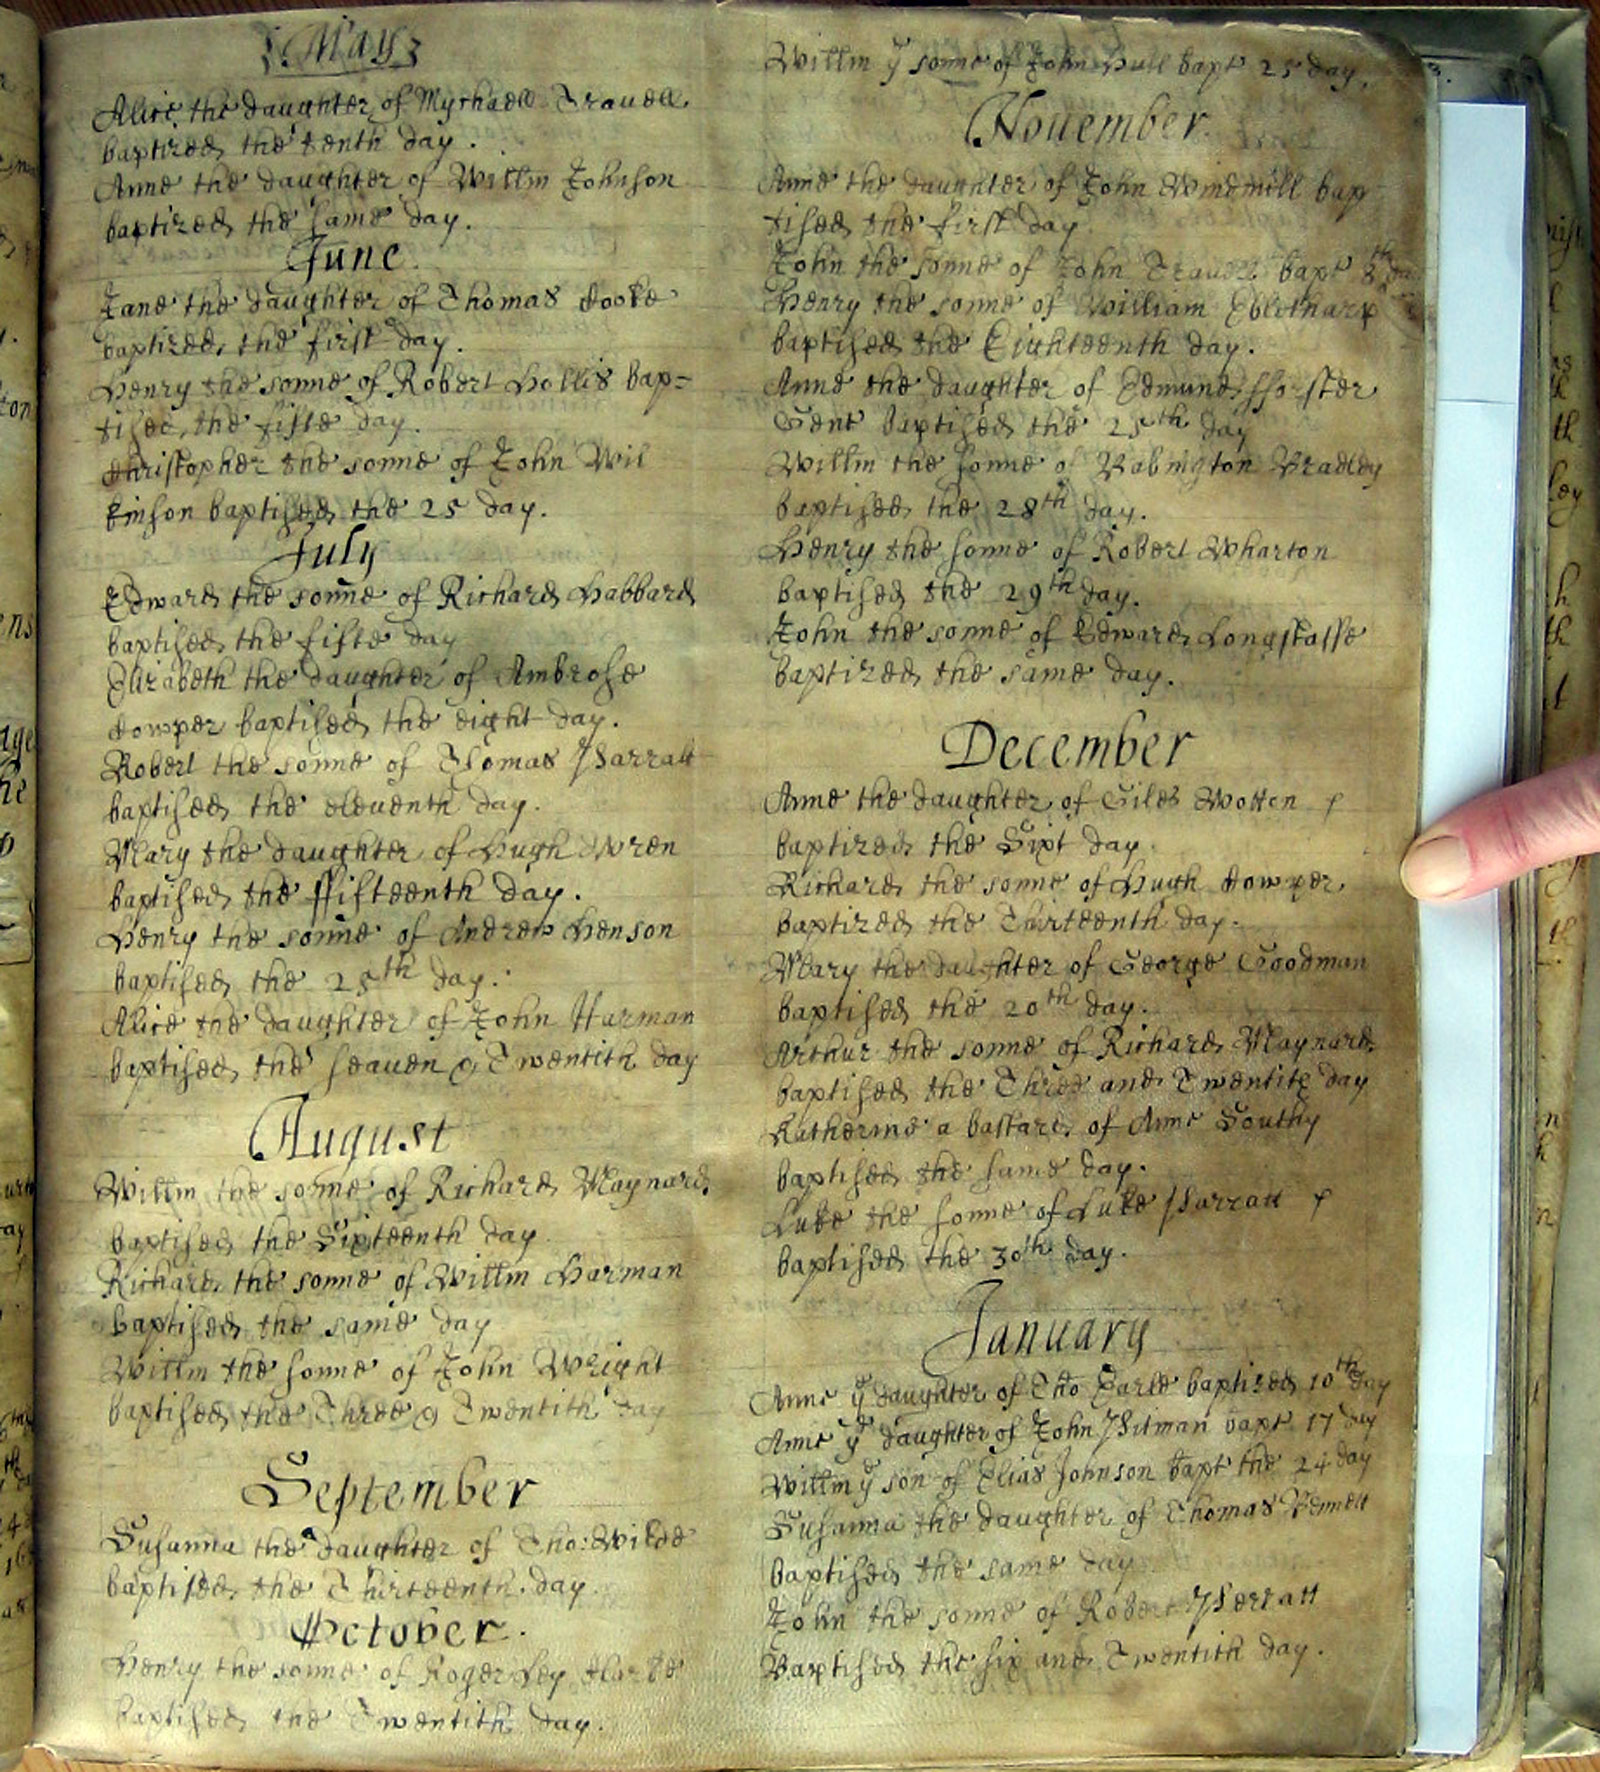 May
Alice the daughter of Mychaell Travell
baptized the tenth day.
Anne the daughter of Willm Johnson
baptized the same day.
June
Jane the daughter of Thomas Cooke
baptized the first day.
Henry the sonne of Robert Hollis bap=
tised the fifte day.
Christopher the sonne of John Wil
kinson baptised the 25 day.
July
Edward the sonne of Richard Habbard
baptised the fifte day
Elizabeth the daughter of Ambrose
Cowper baptised the eight day.
Robert the sonne of Thomas Parratt
baptised the eleventh day.
Mary the daughter of Hugh Wren
baptised the ffifteenth day.
Henry the sonne of Andrew Henson
baptised the 25th day.
Alice the daughter of John Harman
baptised the seaven & Twentith day
August
Willm the sonne of Richard Maynard
baptised the Sixteenth day
Richard the sonne of Willm Harman
baptised the same day
Willm the sonne of John Wright
baptised the Three & Twentith day
September
Susanna the daughter of Tho: Wilde
baptised the Thirteenth day.
October.
Henry the sonne of Roger Ley Clarke
baptised the Twentith day.
Willm ye sonne of John Hull bapt 25 day.
November
Anne the daughter of John Windmill bap
tised the first day
John the sonne of John Travell bapt 8th
Henry the sonne of William
baptised the Eighteenth day.
Anne the daughter of Edmund ffoster
Gent baptised the 25th day
Willm the sonne of Babington Bradley
baptised the 28th day.
Henry the sonne of Robert Wharton
baptised the 29th day.
John the sonne of Edward Longstaffe
baptized the same day.
December
Anne the daughter of Giles Wotton
baptized the Sixt day
Richard the sonne of Hugh Cowper
baptized the Thirteenth day.
Mary the daughter of George Goodman
baptised the 20th day.
Arthur the sonne of Richard Maynard
baptised the Three and Twentith day
Katherine a bastard of Anne Southy
baptised the same day.
Luke the sonne of Luke Parratt
baptised the 30th day.
January
Anne ye daughter of Tho Earle baptized 10th day
Anne ye daughter of John Pitman bapt 17 day
Willm ye son of Elias Johnson bapt the 24 day
Susanna the daughter of Thomas Bennett
baptised the same day
John the sonne of Robert Perratt
Baptised the six and Twentith day.